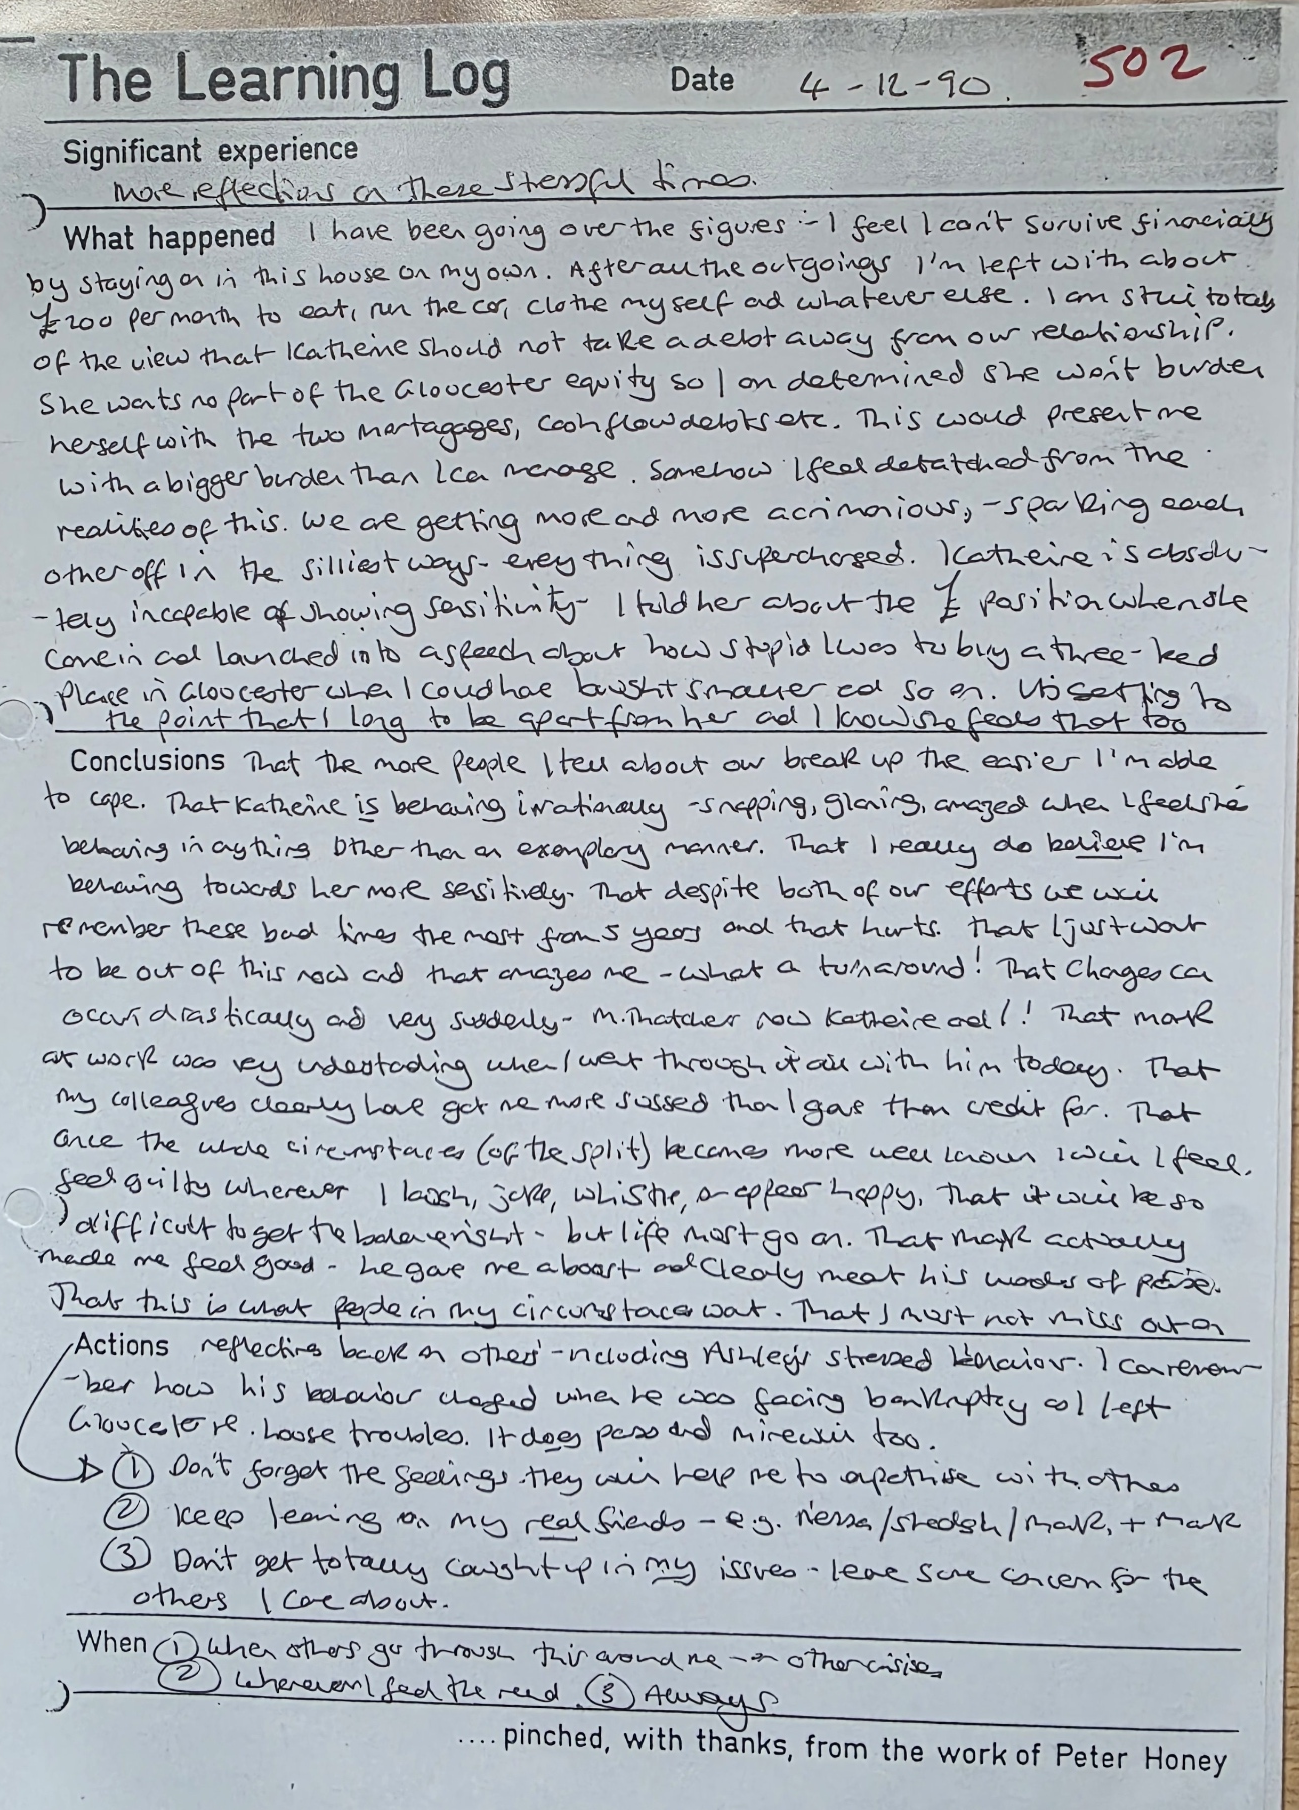 The Learning Log Date 4-12-90. 502
Significant experience
more reflections on these stressful times.
What happened I have been going over the figures :- I feel I can't survive financially
by staying on in this house on my own. After all the outgoings I'm left with about
£200 per month to eat, run the car, clothe myself and whatever else. I am still totally
of the view that Katherine should not take a debt away from our relationship.
She wants no part of the Gloucester equity so I am determined she won't burden
herself with the two mortgages, cashflow debts etc. This would present me
with a bigger burden than I can manage. Somehow I feel detatched from the
realities of this. We are getting more and more acrimonious, - sparking each
other off in the silliest ways - everything is supercharged. Katherine is absolu-
-tely incapable of showing sensitivity - I told her about the £ position when she
came in and launched into a speech about how stupid I was to buy a three-bed
place in Gloucester when I could have bought smaller and so on. It's getting to
the point that I long to be apart from her and I know she feels that too
Conclusions That the more people I tell about our break up the easier I'm able
to cope. That Katherine is behaving irrationally - snapping, glaring, amazed when I feel she's
behaving in anything other than an exemplary manner. That I really do believe I'm
behaving towards her more sensitively. That despite both of our efforts we will
remember these bad times the most from 5 years and that hurts. That I just want
to be out of this now and that amazes me - what a turnaround! That changes can
occur drastically and very suddenly - M. Thatcher now Katherine and I! That Mark
at work was very understanding when I went through it all with him today. That
my colleagues clearly have got me more sussed than I gave them credit for. That
once the whole circumstances (of the split) becomes more well known I will I feel,
feel guilty whenever I laugh, joke, whistle, or appear happy. That it will be so
difficult to get the balance right - but life must go on. That Mark actually
made me feel good - he gave me a boost and clearly meant his words of praise.
That this is what people in my circumstances want. That I must not miss out on
Actions reflecting back on others' - including Ashley's stressed behaviour. I can remem-
-ber how his behaviour changed when he was facing bankruptcy and I left
Gloucester re. house troubles. It does pass and mine will too.
① Don't forget the feelings they will help me to empathise with others
② Keep leaning on my real friends - e.g. Nessa / / Mark, + Mark
③ Don't get totally caught up in my issues - leave some concern for the
others I care about.
When ① when others go through this around me - or other crisises
② Whenever I feel the need ③ Always
.... pinched, with thanks, from the work of Peter Honey